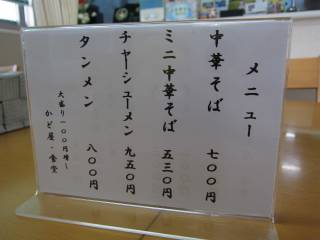 メニュー
中華そば 七〇〇円
ミニ中華そば 五三〇円
チャシューメン 九五〇円
タンメン 八〇〇円
大盛り一〇〇円増し
かど屋・食堂